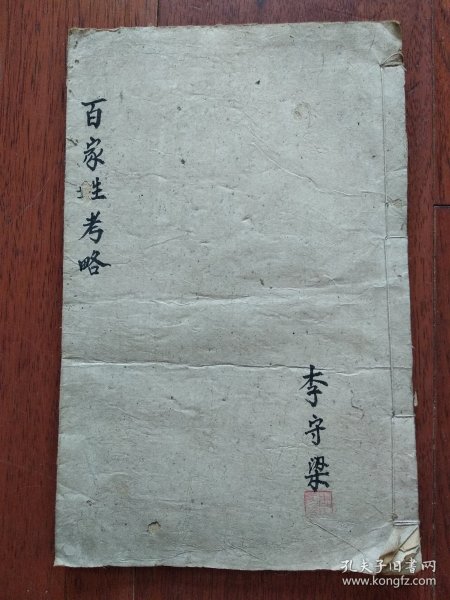 百家姓考略
李守梁
孔夫子旧书网
www.kongfz.com